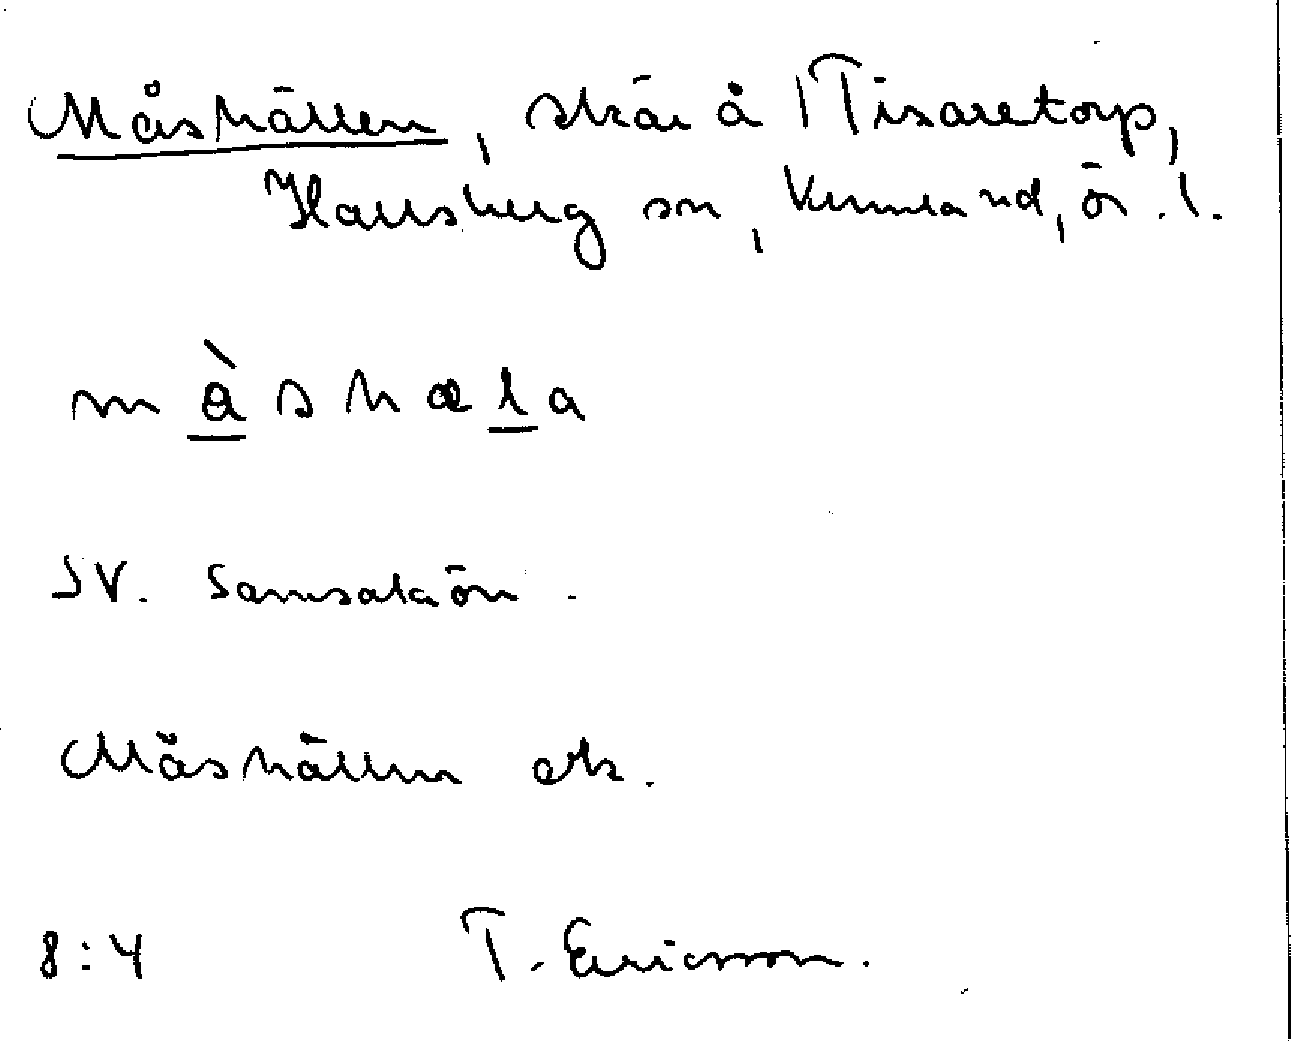 Måshällen, skär å Tisaretorp,
Hallsberg sn, Kumla hd, ör. l.
m å̀ s h æ l a
SV. Samsalaön.
Måshällen ek.
8:4 T. Ericsson.